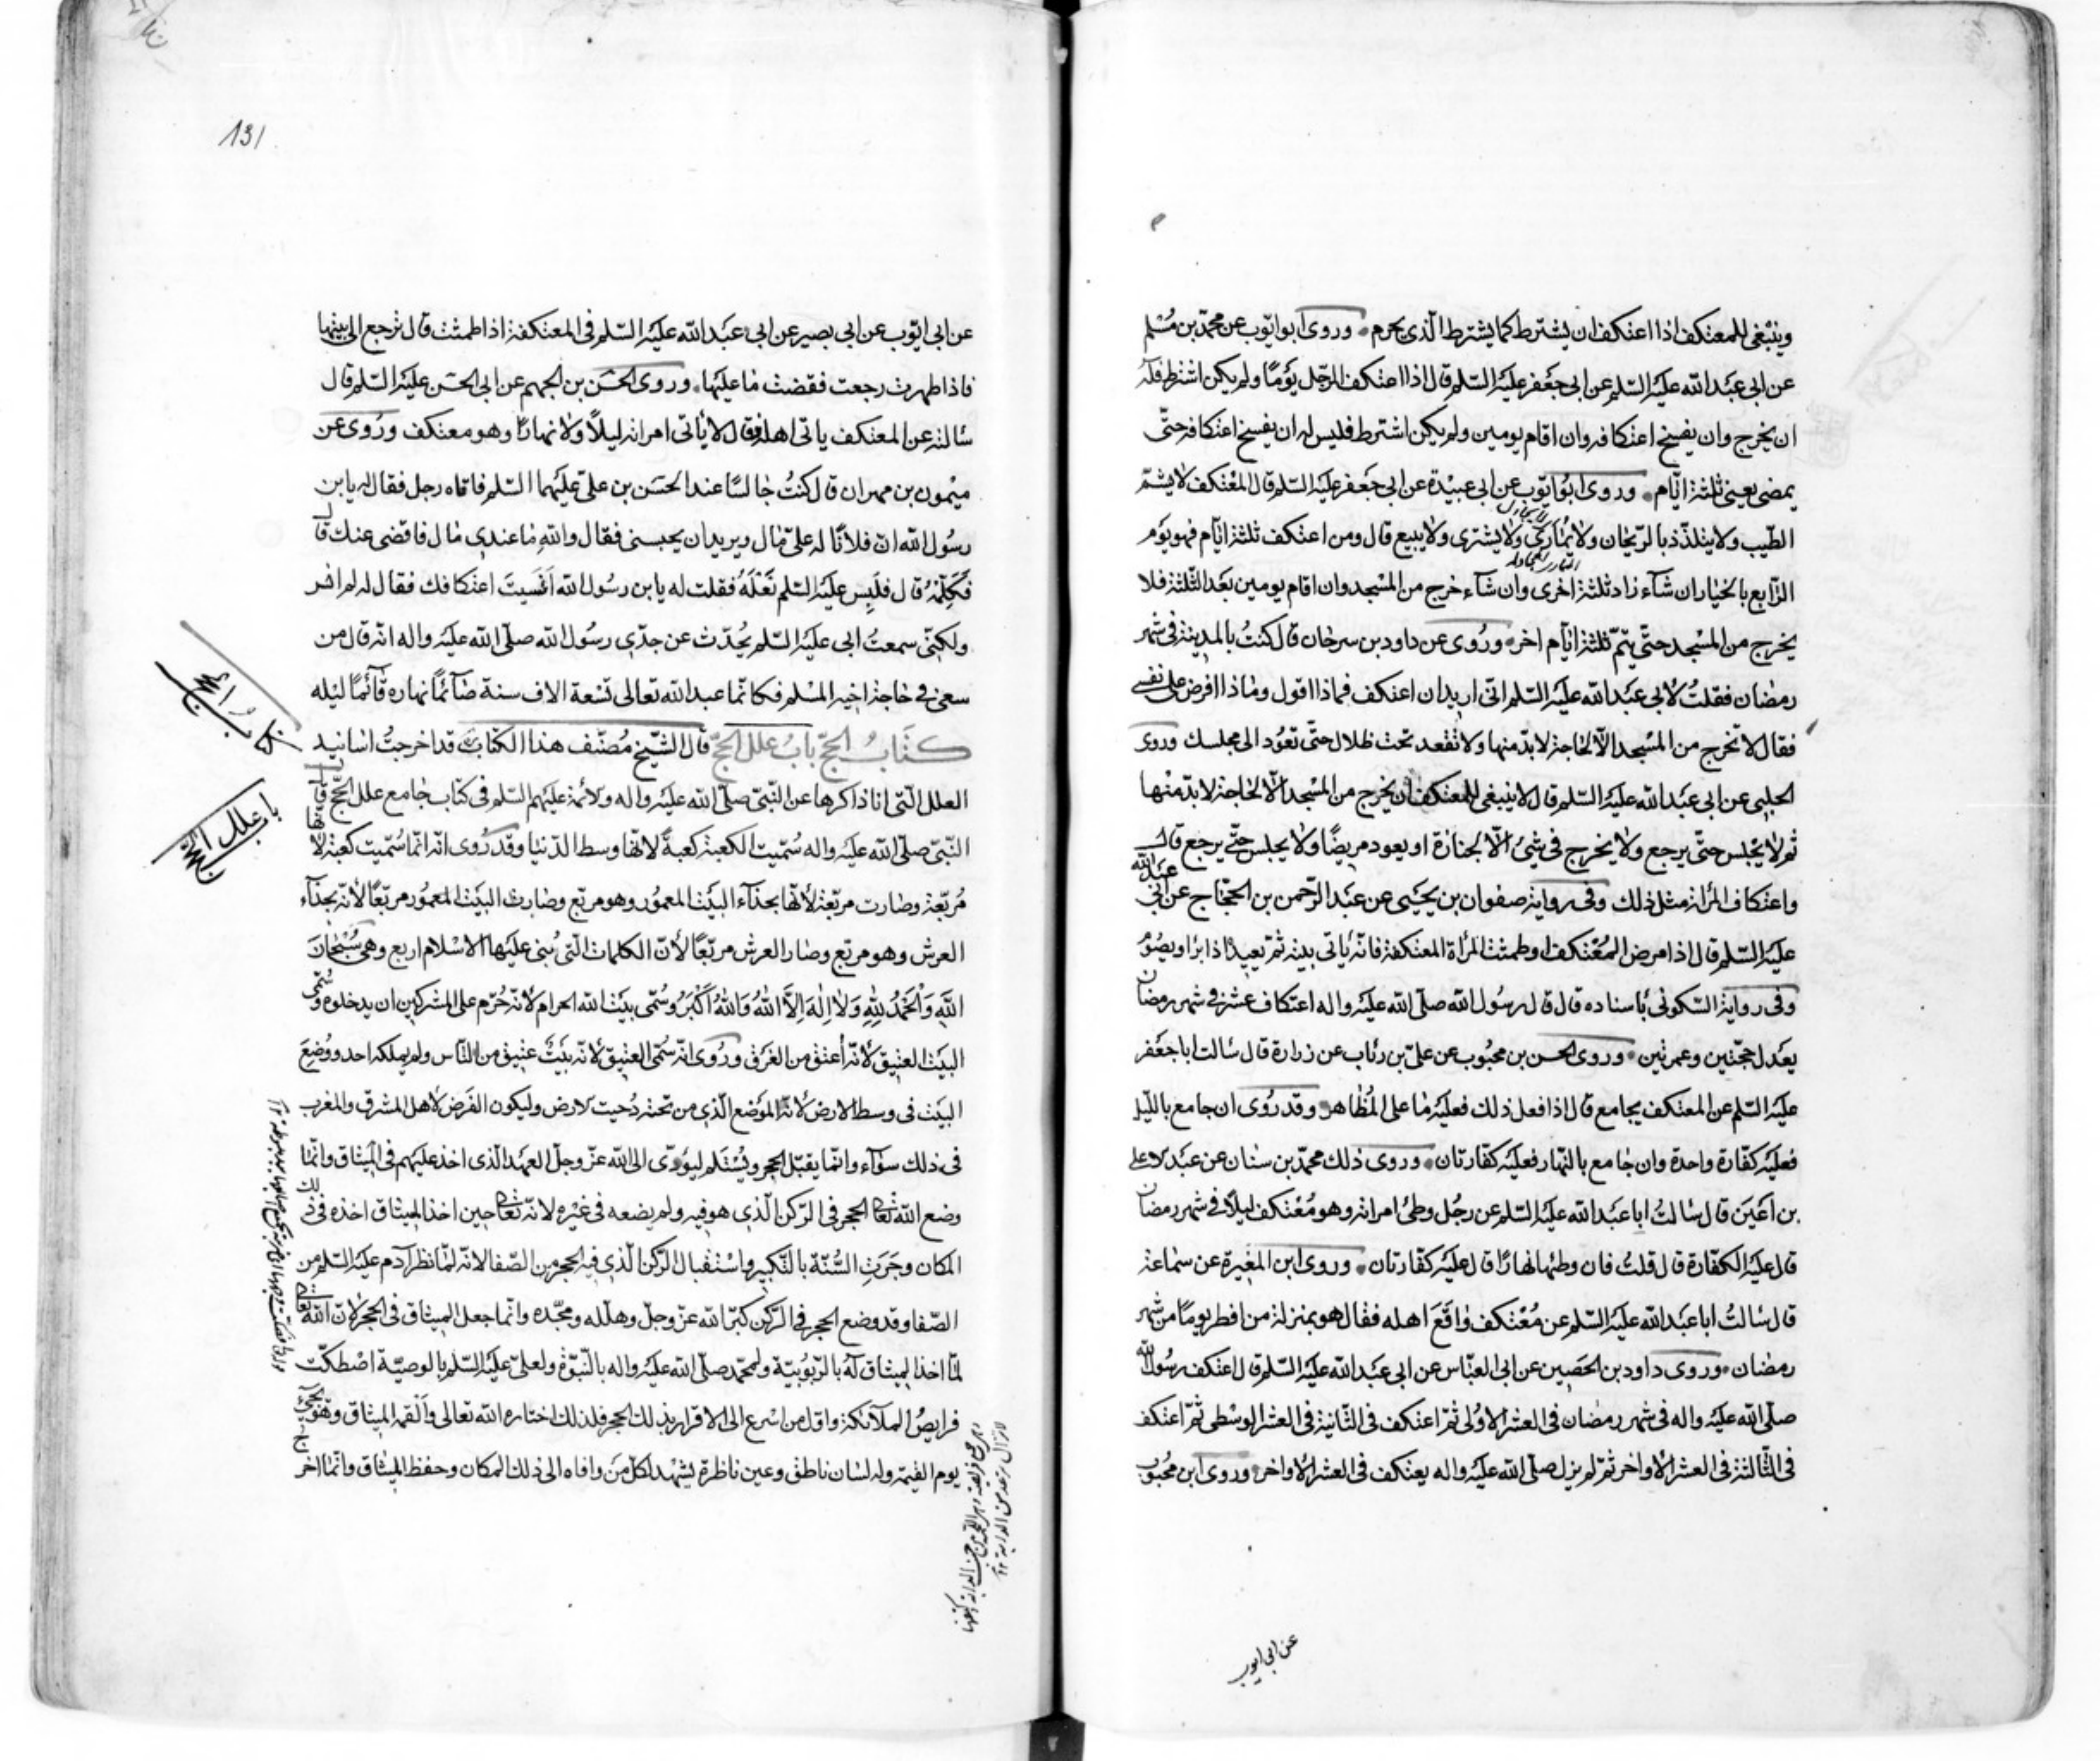 وينبغى للمعتكف اذا اعتكف ان يشترط كما يشترط الّذي يحرم وروى ابو ايّوب عن محمّد بن مُسْلم
عن ابى عبَد الله عليَه السّلم عن ابى جعَفر عليَه السّلم قال اذا اعتكف الرّجل يوَمًا ولم يكن اشترط فله
ان يخرج وان يفسخ اعتكافه وان اقام يومين ولم يكن اشترط فليس له ان يفسخ اعتكافه حتّى
يمضى يعنى ثلثة ايّام وروى ابوُ ايّوب عن ابى عبيْدة عن ابى جعَفر عليَه السّلم قال المعْتكف لا يشمّ
لا يجادل
الطّيب ولا يتلذّذ بالرّيحان ولا يمُارى ولا يشترى ولا يبيع قال ومن اعتكف ثلثة ايّام فهو يوَم
الرّابع بالخيار ان شآء زاد ثلثة اخرى وان شآء خرج من المسْجد وان اقام يومين بعَد الثّلثة فلا
يخرج من المسْجد حتّى يتمّ ثلثة ايّام اخر وروُى عن داود بن سرحان قال كنتُ بالمدينة فى شهر
رمضان فقلتُ لأبى عبَد الله عليَه السّلم انّى اريد ان اعتكف فماذا اقول وماذا افرض على نفسى
فقال لا تخرج من المسْجد الّا لحاجة لا بدّ منها ولا تقعد تحت ظلال حتّى تعوُد الى مجلسك وروى
الحلبى عن ابى عبَد الله عليَه السّلم قال لا ينبغى للمعتكف ان يخرج من المسْجد الّا لحاجة لا بدّ منْها
ثم لا يجْلس حتّى يرجع ولا يخرج فى شىْء الّا لجنازة او يعود مريضًا ولا يجلس حتّى يرجع قال
واعتكاف المرْاة مثل ذلك وفى رواية صفوان بن يحيَى عن عبَد الرّحمن بن الحجّاج عن ابى عبَد الله
عليَه السّلم قال اذا مرض المُعْتكف او طمثت المرْاة المعتكفة فانّه ياتى بيته ثمّ يعيد اذا برا ويصوُم
وفى رواية السّكونى باسناده قال قال رسُول الله صلّى الله عليَه واله اعتكاف عشر فى شهر رمضان
يعَدل حجّتين وعمرتين وروى الحسن بن محبُوب عن علىّ بن رئاب عن زرارة قال سالت ابا جعَفر
عليَه السّلم عن المعتكف يجامع قال اذا فعل ذلك فعليَه ما على المُظاهر وقد روُى ان جامع باللّيل
فعليَه كفّارة واحدة وان جامع بالنّهار فعليَه كفّارتان وروى ذلك محمّد بن سنان عن عبَد الاعلى
بن اعَينَ قال سالتُ ابا عبَد الله عليَه السّلم عن رجُل وطئ امراته وهو مُعْتكف ليلاً فى شهر رمضان
قال عليَه الكفّارة قال قلتُ فان وطئها نهارًا قال عليَه كفّارتان وروى ابن المغيرة عن سماعة
قال سالتُ ابا عبَد الله عليَه السّلم عن مُعْتكف واقَعَ اهله فقال هو بمنزلة من افطر يومًا من شهر
رمضان وروى داود بن الحصَين عن ابى العبّاس عن ابى عبَد الله عليَه السّلم قال اعتكف رسُول الله
صلّى الله عليَه واله فى شهر رمضان فى العشر الاوُلى ثمّ اعتكف فى الثّانية فى العشر الوسْطى ثمّ اعتكف
فى الثّالثة فى العشر الأواخر ثمّ لم يزل صلّى الله عليَه واله يعتكف فى العشر الاواخر وروى ابن محبُوب
عن ابى ايوب
131
عن ابى ايّوب عن ابى بصير عن ابى عبَد الله عليَه السّلم فى المعتكفة اذا طمثت قال ترجع الى بيتها
فاذا طهرت رجعت فقضت ما عليَها وروى الحسَن بن الجهم عن ابى الحسَن عليَه السّلم قال
سالته عن المعتكف ياتى اهله فقال لا يأتى امراته ليلاً ولا نهارًا وهو معتكف ورُوى عن
ميْمون بن مهران قال كنتُ جالسًا عند الحسَن بن علىّ عليَهما السّلم فاتاه رجل فقال له يا بن
رسُول الله انّ فلانًا له علىّ مال ويريد ان يحبسنى فقال والله ما عندي مال فاقضى عنك قال
فكلّمْهُ قال فلَبِس عليَه السّلم نعَلَهُ فقلت له يا بن رسُول الله اَنَسيتَ اعتكافك فقال له لم انس
ولكنّى سمعتُ ابى عليَه السّلم يحُدّث عن جدّي رسُول الله صلّى الله عليَه واله انّه قال من
سعى فى حاجة اخيه المسْلم فكانّما عبد الله تعالى تسْعة الاف سنة صآئمًا نهاره قآئمًا ليْله
كتَابُ الحجّ بابُ علل الحجّ قال الشّيخ مُصنّف هذا الكتاب قد اخرجتُ اسانيد
العلل الّتى انا ذاكرها عن النّبىّ صلّى الله عليَه واله والأئمة عليَهم السّلم فى كتاب جامع علل الحجّ قال
النّبىّ صلّى الله عليَه واله سُمّيت الكعبة كعبةً لانّها وسط الدّنيا وقد روُى انّه انّما سُمّيت كعبة لأنّها
مُربّعة وصارت مربّعة لأنّها بحذآء البيَت المعموُر وهو مربّع وصار البيَت المعموُر مربّعًا لأنّه بحذآء
العرش وهو مربّع وصار العرش مربّعًا لأنّ الكلمات الّتى بُنى عليَها الاسْلام اربع وهى سُبْحانَ
اللهِ وَالحْمَدُ لِلّهِ وَلا اِلٰهَ اِلاَّ اللهُ وَاللهُ اَكْبَرُ وسُمّى بيَت الله الحرام لأنّه حُرّم على المشركين ان يدخلوه وسُمّى
البيَت العتيق لأنّه أُعتق من الغَرَق ورُوى انّه سُمّى العتيق لانّه بيَتٌ عتيق من النّاس ولم يملكه احد ووُضِعَ
البيَت فى وسط الارض لأنّه الموَضع الّذي من تحته دُحيت الارض وليكون الفَرض لأهل المشرق والمغرب
فى ذلك سوآء وانّما يقبّل الحجر ويُسْتلم ليؤدّى الى الله عزّ وجلّ العهَد الّذى اخذ عليَهم فى الميثاق وانّما
وضع الله تعالى الحجر فى الرّكن الّذي هو فيه ولم يضعه فى غيْره لانّه تعالى حين اخذ الميثاق اخذه فى ذلك
المكان وجَرَتِ السُّنّة بالتّكبير واسْتقبال الرّكن الّذي فيه الحجر من الصّفا لانّه لمّا نظر آدم عليَه السّلم من
الصّفا وقد وضع الحجر فى الرّكن كبّر الله عزّ وجلّ وهلّله ومجّده وانّما جعل الميثاق فى الحجر لأنّ الله تعالى
لمّا اخذ الميثاق له بالرّبوُبيّة ولمحمّد صلّى الله عليَه واله بالنّبوّة ولعلىّ عليَه السّلم بالوصيّة اصْطكّت
فرايصُ الملآئكة واوّل من اسْرع الى الاقرار بذلك الحجر فلذلك اختاره الله تعالى واَلْقمه الميثاق وهو يجىء
يوم القيمة وله لسان ناطق وعين ناظرة يشهَد لكلّ منَ وافاه الى ذلك المكان وحفظ الميثاق وانّما اخر
كتاب الحج
باب علل الحج